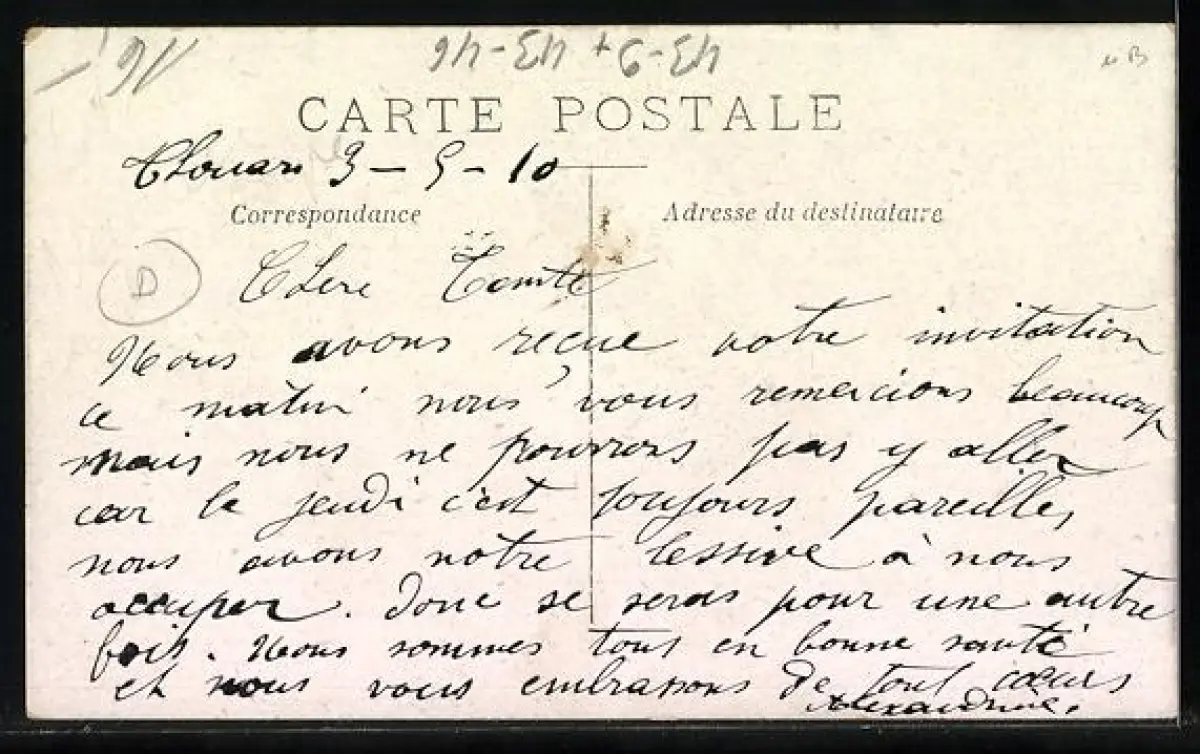 16
43-9 + 43-46
B
CARTE POSTALE
Thouars 3 - 5 - 10
Correspondance
Adresse du destinataire
D
Chère Tante
Nous avons reçue votre invitation
ce matin nous vous remercions beaucoup
mais nous ne pourrons pas y aller
car le jeudi c'est toujours pareille,
nous avons notre lessive à nous
occuper. donc se seras pour une autre
fois. Nous sommes tous en bonne santé
et nous vous embrassons de tout cœurs
Alexandrine.